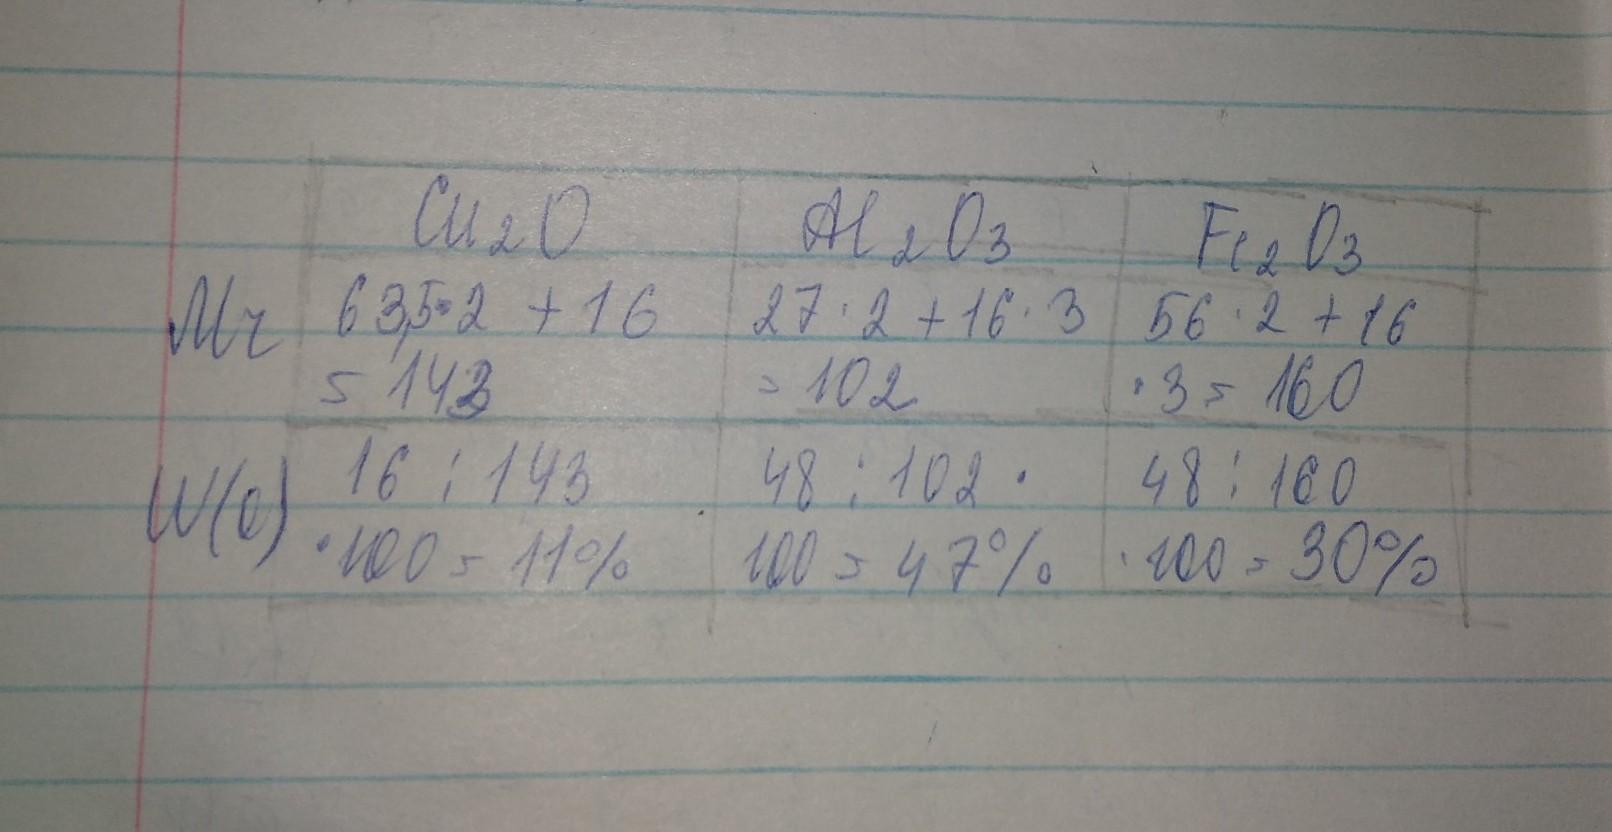 Cu₂O Al₂O₃ Fe₂O₃
Mr 63,5·2 + 16 27·2 + 16·3 56·2 + 16
= 143 = 102 ·3 = 160
W(O) 16 : 143 48 : 102 · 48 : 160
·100 = 11% 100 = 47% ·100 = 30%